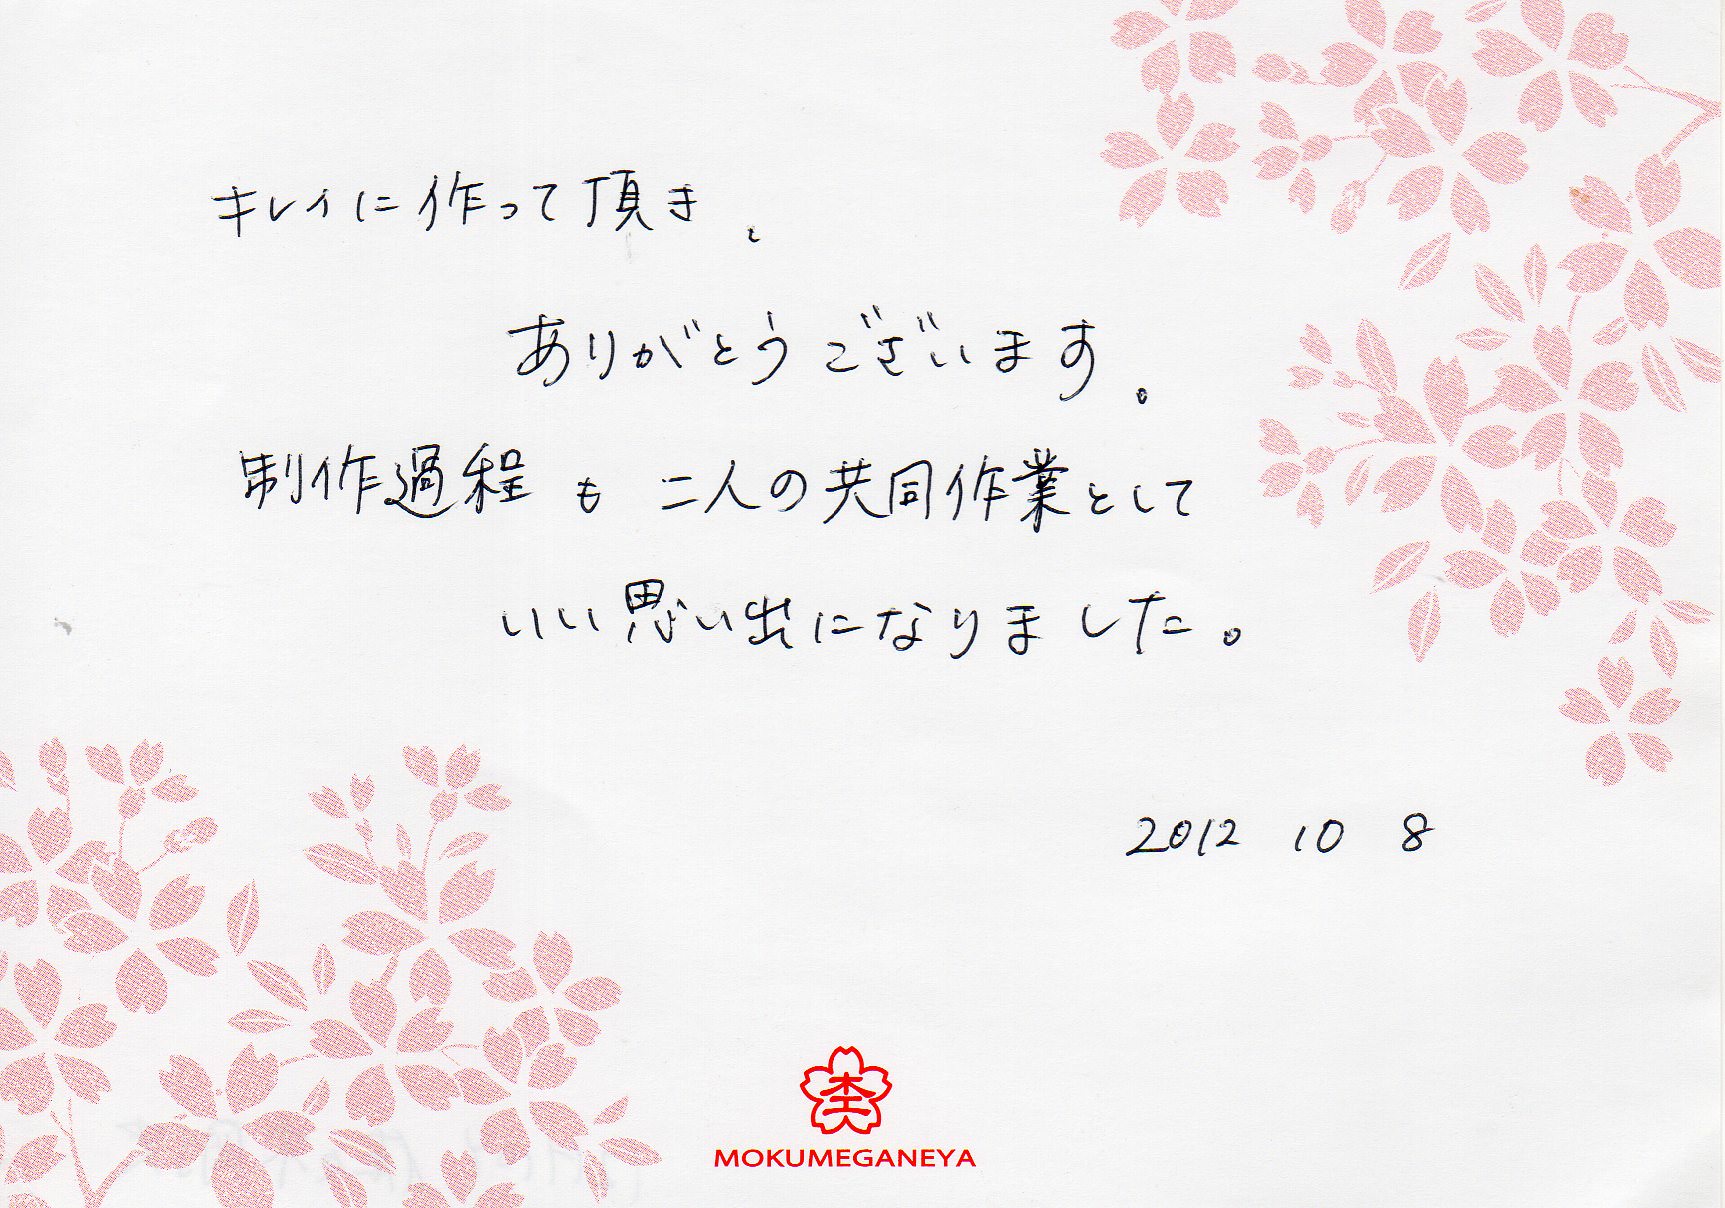 キレイに作って頂き、
ありがとうございます。
制作過程も二人の共同作業として
いい思い出になりました。
2012 10 8
杢
MOKUMEGANEYA